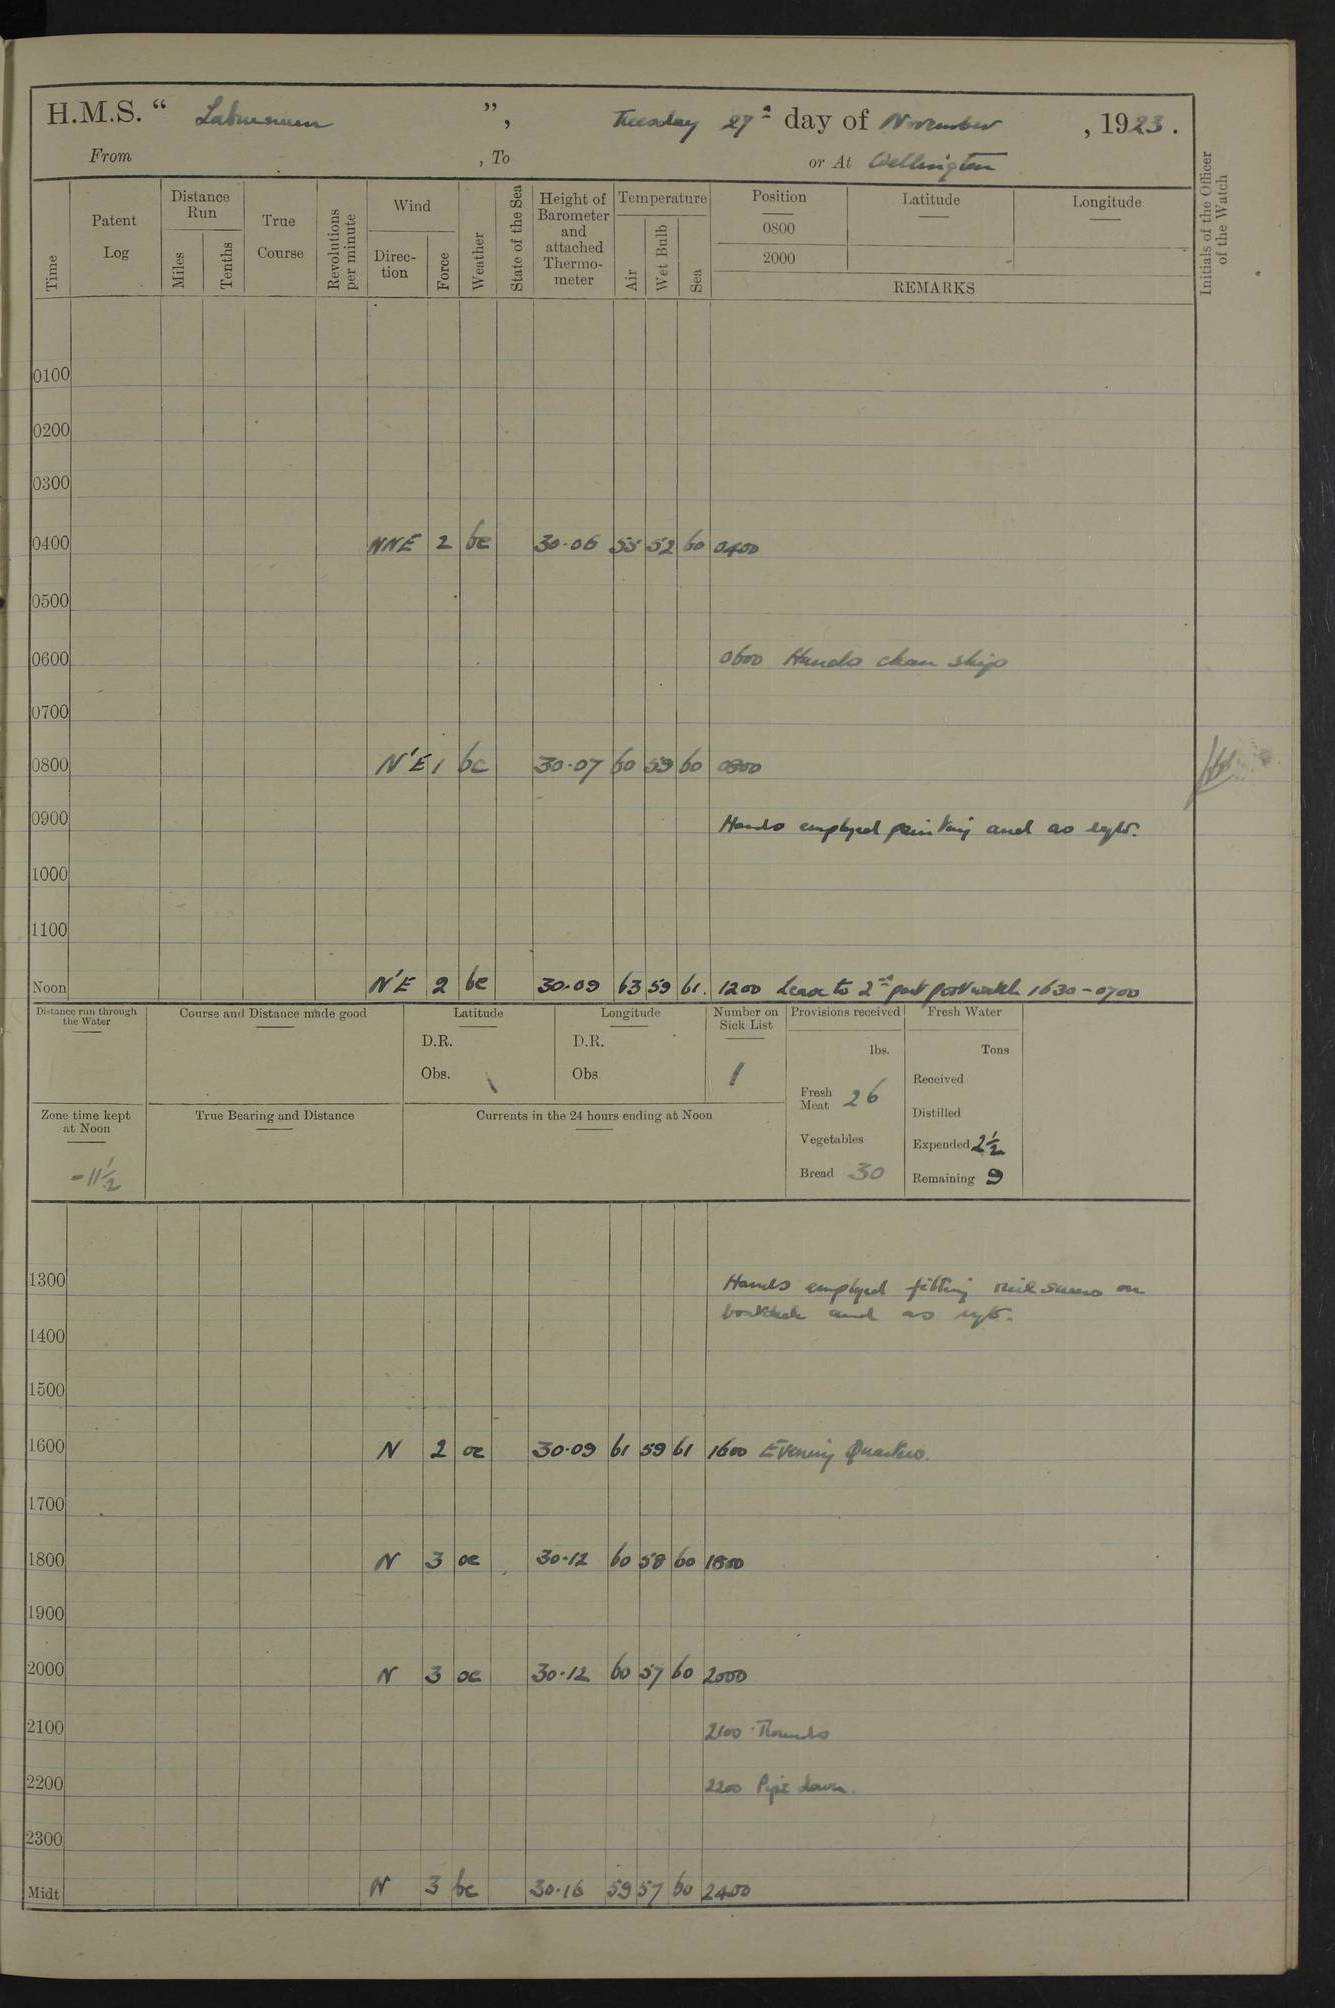 H.M.S. “ Laburnum ”, Tuesday 27th day of November, 1923.
From , To or At Wellington
Time
Patent Log
Distance Run
Miles
Tenths
True Course
Revolutions per minute
Wind
Direction
Force
Weather
State of the Sea
Height of Barometer and attached Thermometer
Temperature
Air
Wet Bulb
Sea
Position
0800
2000
Latitude
Longitude
REMARKS
Initials of the Officer of the Watch
0100
0200
0300
0400 NNE 2 bc 30·06 55 52 60 0400
0500
0600 0600 Hands clean ship
0700
0800 N'E 1 bc 30·07 60 59 60 0800
0900 Hands employed painting and as reqte.
1000
1100
Noon N'E 2 bc 30·09 63 59 61. 1200 Leave to 2nd part port watch 1630-0700
Distance run through the Water
Course and Distance made good
Latitude
D.R.
Obs.
Longitude
D.R.
Obs
Number on Sick List
1
Provisions received
lbs.
Fresh Meat 26
Vegetables
Bread 30
Fresh Water
Tons
Received
Distilled
Expended 2½
Remaining 9
Zone time kept at Noon
-11½
True Bearing and Distance
Currents in the 24 hours ending at Noon
1300 Hands employed fitting on
and as
1400
1500
1600 N 2 oc 30·09 61 59 61 1600 Evening Quarters.
1700
1800 N 3 oc 30·12 60 58 60 1800
1900
2000 N 3 oc 30·12 60 57 60 2000
2100 2100 Rounds
2200 2200 Pipe down.
2300
Midt N 3 bc 30·16 59 57 60 2400